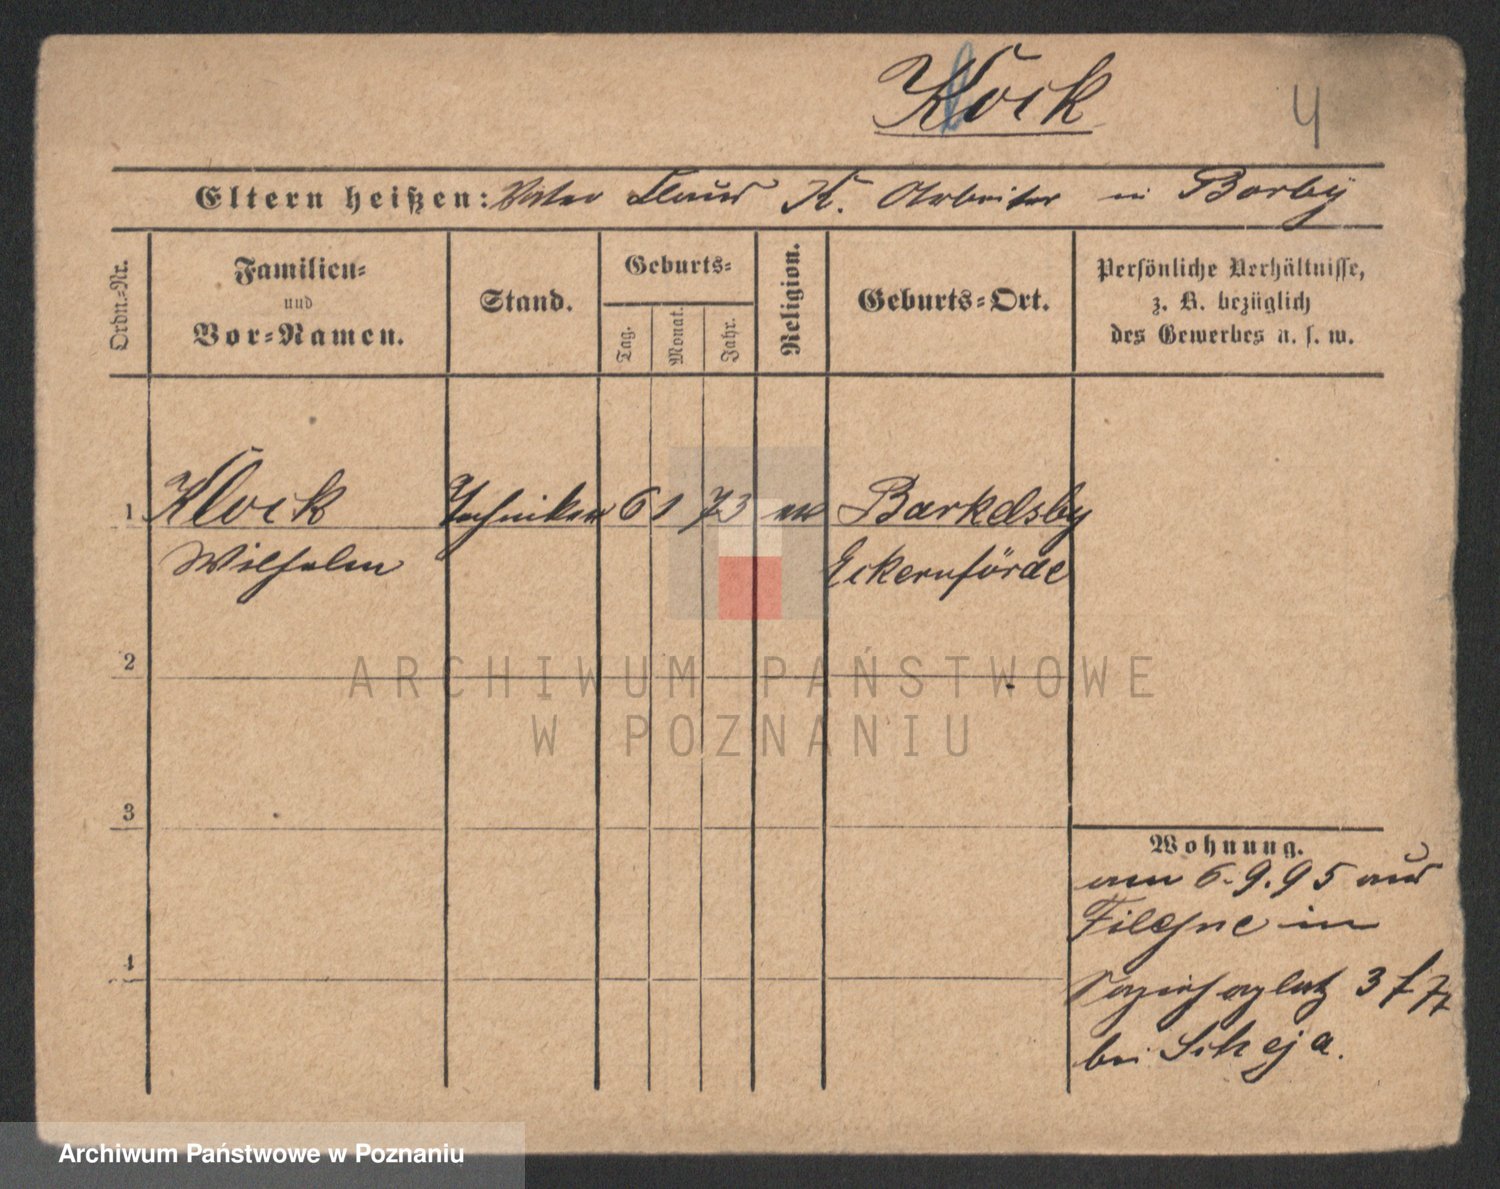 Klock
4
Eltern heißen: Vater Claus K. Arbeiter in Borby
Ordn.-Nr.
Familien-
und
Vor-Namen.
Stand.
Geburts-
Tag.
Monat.
Jahr.
Religion.
Geburts-Ort.
Persönliche Verhältnisse,
z. B. bezüglich
des Gewerbes u. s. w.
1 Klock Techniker 6 1 73 ev Barkelsby
Wilhelm Eckernförde
2
3
4
Wohnung.
am 6.9.95 aus
Filehne in
Sapiehaplatz 3
bei Scheja.
ARCHIWUM PAŃSTWOWE
W POZNANIU
Archiwum Państwowe w Poznaniu